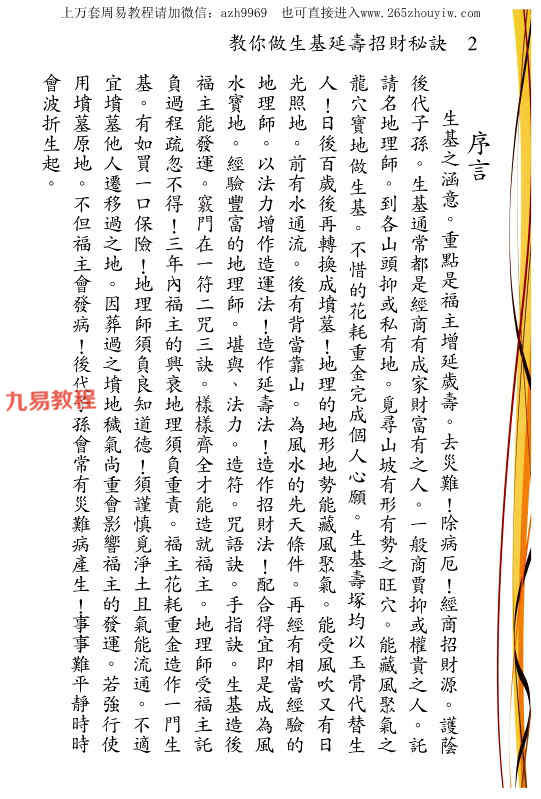 上万套周易教程请加微信：azh9969 也可直接进入www.265zhouyiw.com
教你做生基延壽招財秘訣 2
序言
生基之涵意。重點是福主增延歲壽。去災難！除病厄！經商招財源。護蔭
後代子孫。生基通常都是經商有成家財富有之人。一般商賈抑或權貴之人。託
請名地理師。到各山頭抑或私有地。覓尋山坡有形有勢之旺穴。能藏風聚氣之
龍穴寶地做生基。不惜的花耗重金完成個人心願。生基壽塚均以玉骨代替生
人！日後百歲後再轉換成墳墓！地理的地形地勢能藏風聚氣。能受風吹又有日
光照地。前有水通流。後有背當靠山。為風水的先天條件。再經有相當經驗的
地理師。以法力增作造運法！造作延壽法！造作招財法！配合得宜即是成為風
水寶地。經驗豐富的地理師。堪與、法力。造符。咒語訣。手指訣。生基造後
福主能發運。竅門在一符二咒三訣。樣樣齊全才能造就福主。地理師受福主託
負過程疏忽不得！三年內福主的興衰地理須負重責。福主花耗重金造作一門生
基。有如買一口保險！地理師須負良知道德！須謹慎覓淨土且氣能流通。不適
宜墳墓他人遷移過之地。因葬過之墳地穢氣尚重會影響福主的發運。若強行使
用墳墓原地。不但福主會發病！後代子孫會常有災難病產生！事事難平靜時時
會波折生起。
九易教程